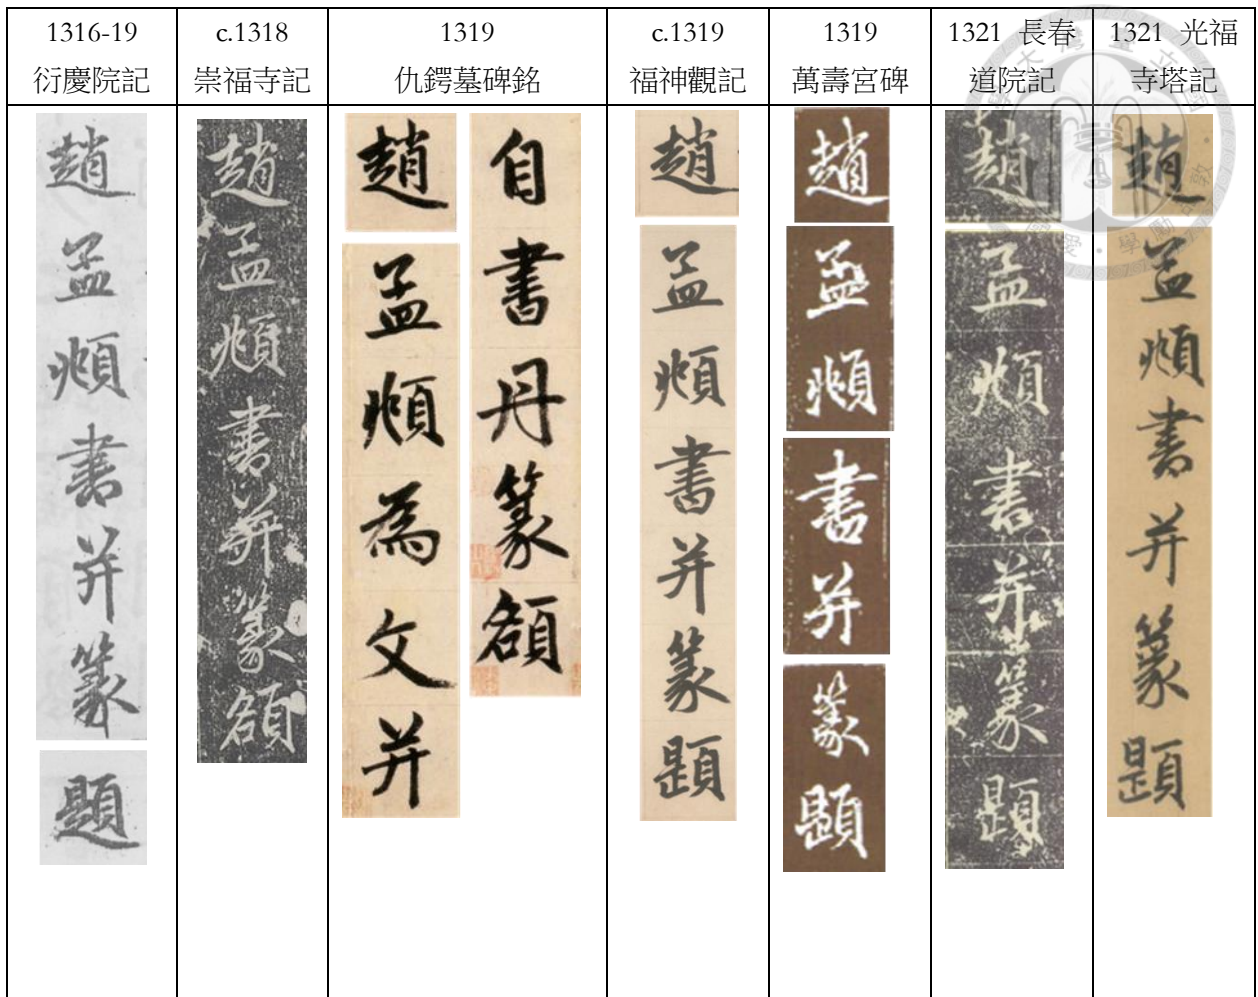 1316-19
衍慶院記
c.1318
崇福寺記
1319
仇鍔墓碑銘
c.1319
福神觀記
1319
萬壽宮碑
1321 長春
道院記
1321 光福
寺塔記
趙孟頫書并篆題
趙孟頫書并篆額
趙孟頫為文并
自書丹篆額
趙孟頫書并篆題
趙孟頫書并篆題
趙孟頫書并篆題
趙孟頫書并篆題